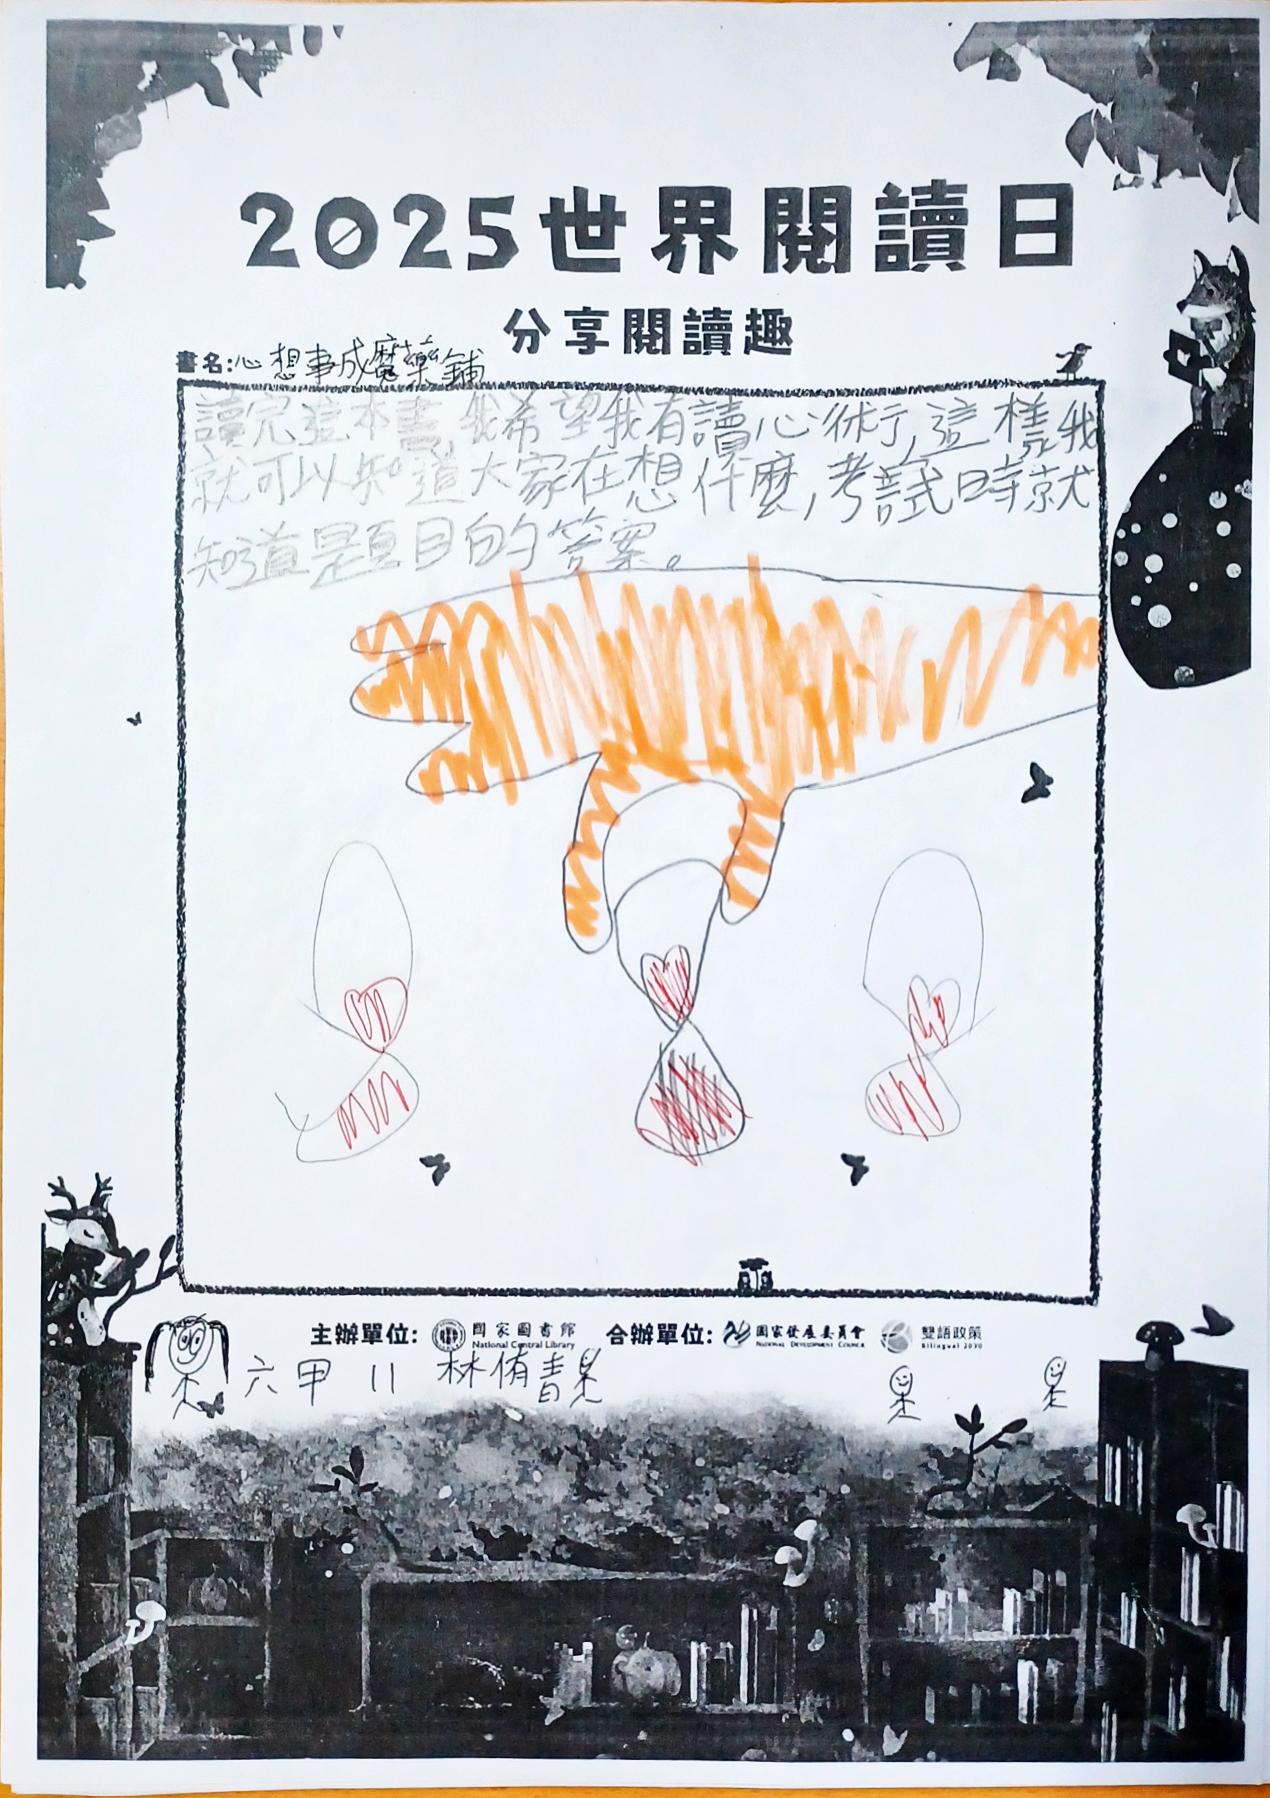 2025世界閱讀日
分享閱讀趣
書名:心想事成魔藥鋪
讀完這本書,我希望我有讀心術,這樣我
就可以知道大家在想什麼,考試時就
知道題目的答案。
主辦單位: 國家圖書館 National Central Library 合辦單位: 國家發展委員會 NATIONAL DEVELOPMENT COUNCIL 雙語政策 Bilingual 2030
六甲 11 林侑青